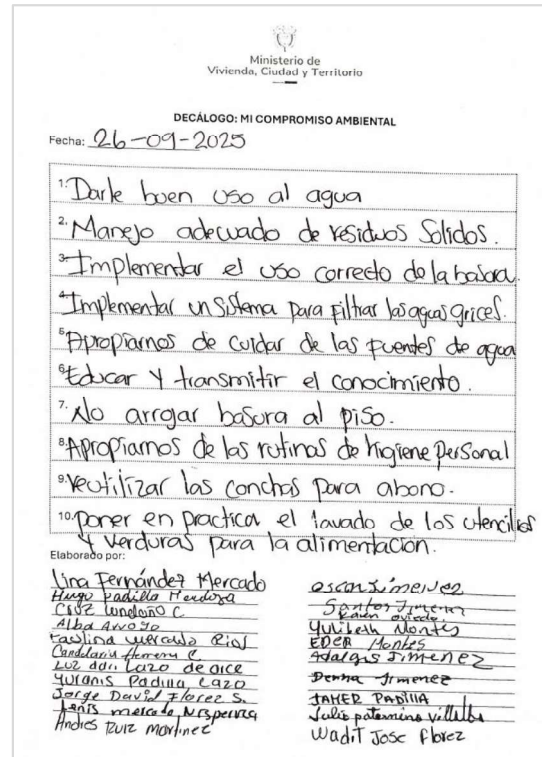 Ministerio de
Vivienda, Ciudad y Territorio
DECÁLOGO: MI COMPROMISO AMBIENTAL
Fecha: 26-09-2025
1. Darle buen uso al agua
2. Manejo adecuado de residuos Solidos.
3. Implementar el uso correcto de la basura.
4. Implementar un Sistema para filtrar las aguas grices.
5. Apropiarnos de cuidar de las fuentes de agua
6. Educar y transmitir el conocimiento.
7. No arrogar basura al piso.
8. Apropiarnos de las rutinas de higiene Personal
9. Reutilizar las conchas para abono.
10. poner en practica el lavado de los utencilios
y verduras para la alimentación.
Elaborado por:
Lina Fernández Mercado
Hugo Padilla Mendoza
Cruz Londoño C
Alba Arroyo
Paulina mercado Rios
Candelaria Herrera C.
Luz dari Lazo de arce
Yuranis Padilla Lazo
Jorge David Florez S.
Lenis mercado
Andres Ruiz martinez
oscar Jimenez
Santos Jimenez
Karen oviedo
Yulibeth Montes
EDER Montes
Adalgis Jimenez
Jimenez
JAHER PADILLA
Julio paternina villalba
Wadit Jose florez